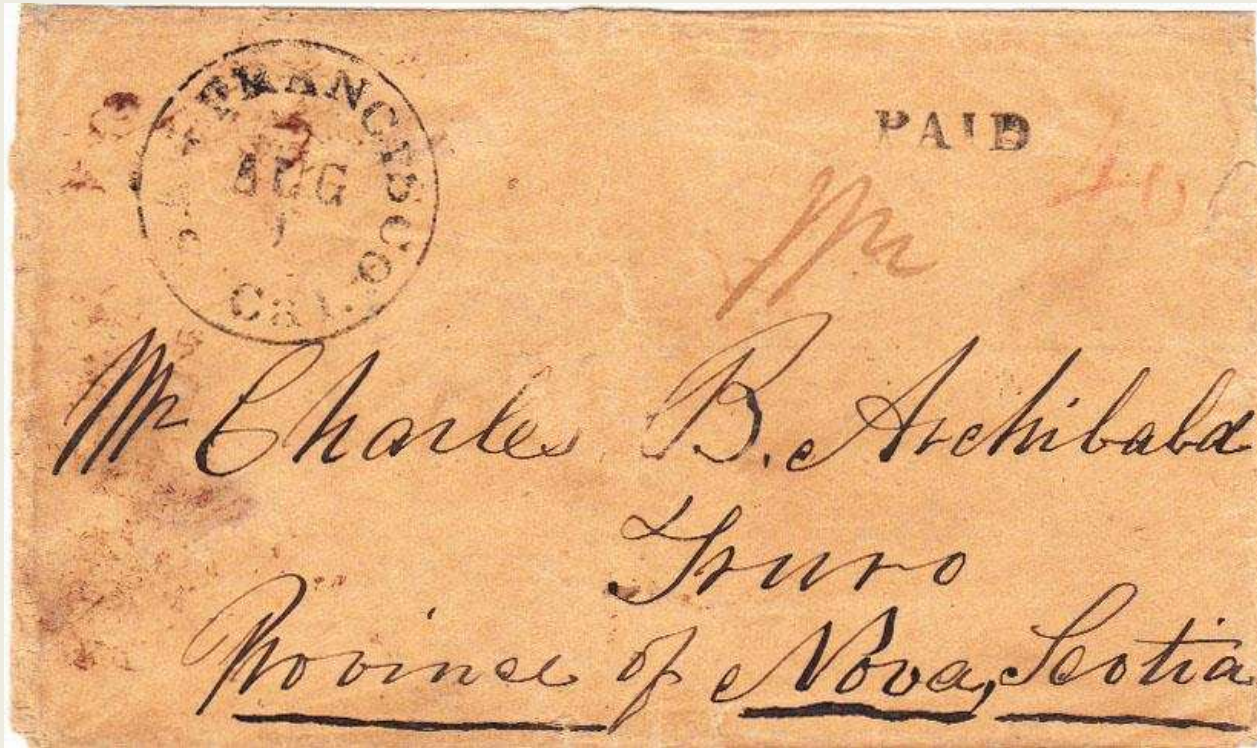 SAN FRANCISCO
AUG
1
Cal.
PAID
40
Mr Charles B. Archibald
Truro
Province of Nova, Scotia